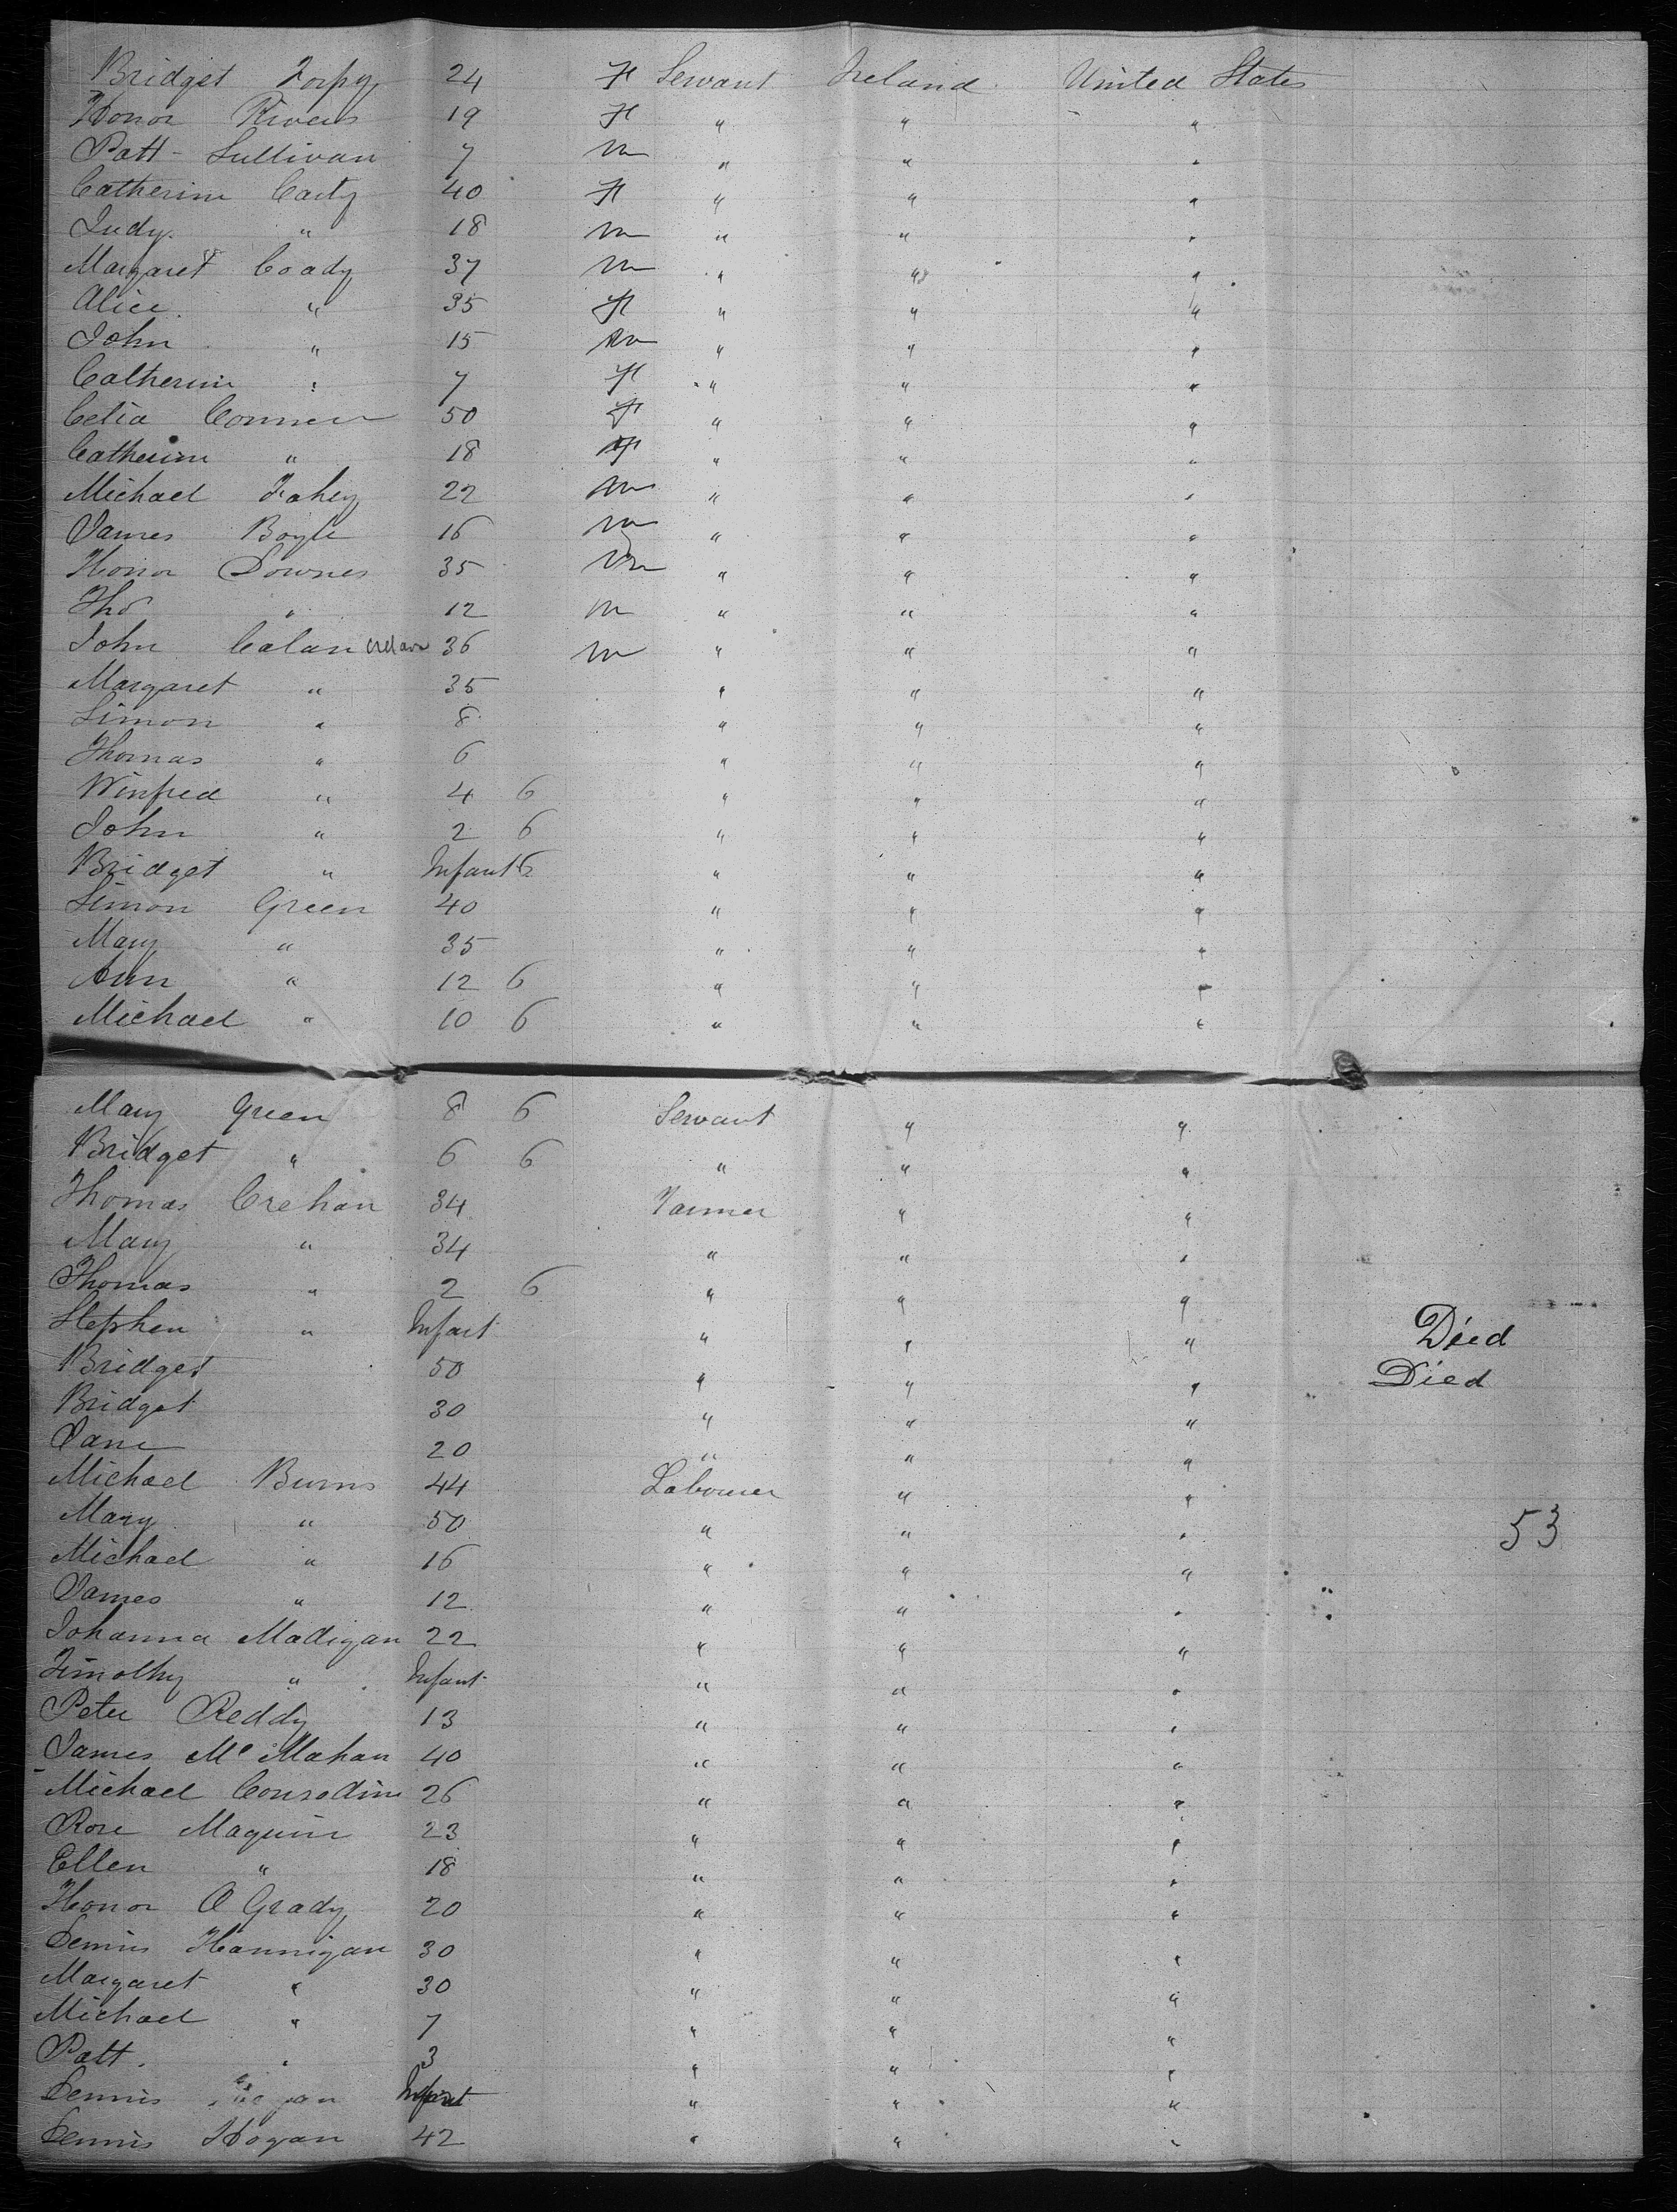 Bridget Torpy 24 F Servant Ireland United States
Honor Rivers 19 F " " "
Patt Sullivan 7 m " " "
Catherine Carty 40 F " " "
Judy " 18 m " " "
Margaret Coady 37 m " " "
Alice " 35 F " " "
John " 15 m " " "
Catherine " 7 F " " "
Celia Conner 50 F " " "
Catherine " 18 F " " "
Michael Fahey 22 m " " "
James Boyle 16 m " " "
Honor Downes 35 m " " "
Tho " 12 m " " "
John Calan 36 m " " "
Margaret " 35 " " "
Simon " 8 " " "
Thomas " 6 " " "
Winfred " 4 6 " " "
John " 2 6 " " "
Bridget " Infant 6 " " "
Simon Green 40 " " "
Mary " 35 " " "
Ann " 12 6 " " "
Michael " 10 6 " " "
Mary Green 8 6 Servant " "
Bridget " 6 6 " " "
Thomas Crehan 34 Farmer " "
Mary " 34 " " "
Thomas " 2 6 " " "
Stephen " Infant " " " Died
Bridget 50 " " " Died
Bridget 30 " " "
Jane 20 " " "
Michael Burns 44 Labourer " "
Mary " 50 " " " 53
Michael " 16 " " "
James " 12 " " "
Johanna Madigan 22 " " "
Timothy " Infant " " "
Peter Reddy 13 " " "
James Mc Mahan 40 " " "
Michael Consodine 26 " " "
Rose Maguire 23 " " "
Ellen " 18 " " "
Honor O Grady 20 " " "
Dennis Hannigan 30 " " "
Margaret " 30 " " "
Michael " 7 " " "
Patt " 3 " " "
Dennis Infant " " "
Dennis Hogan 42 " " "